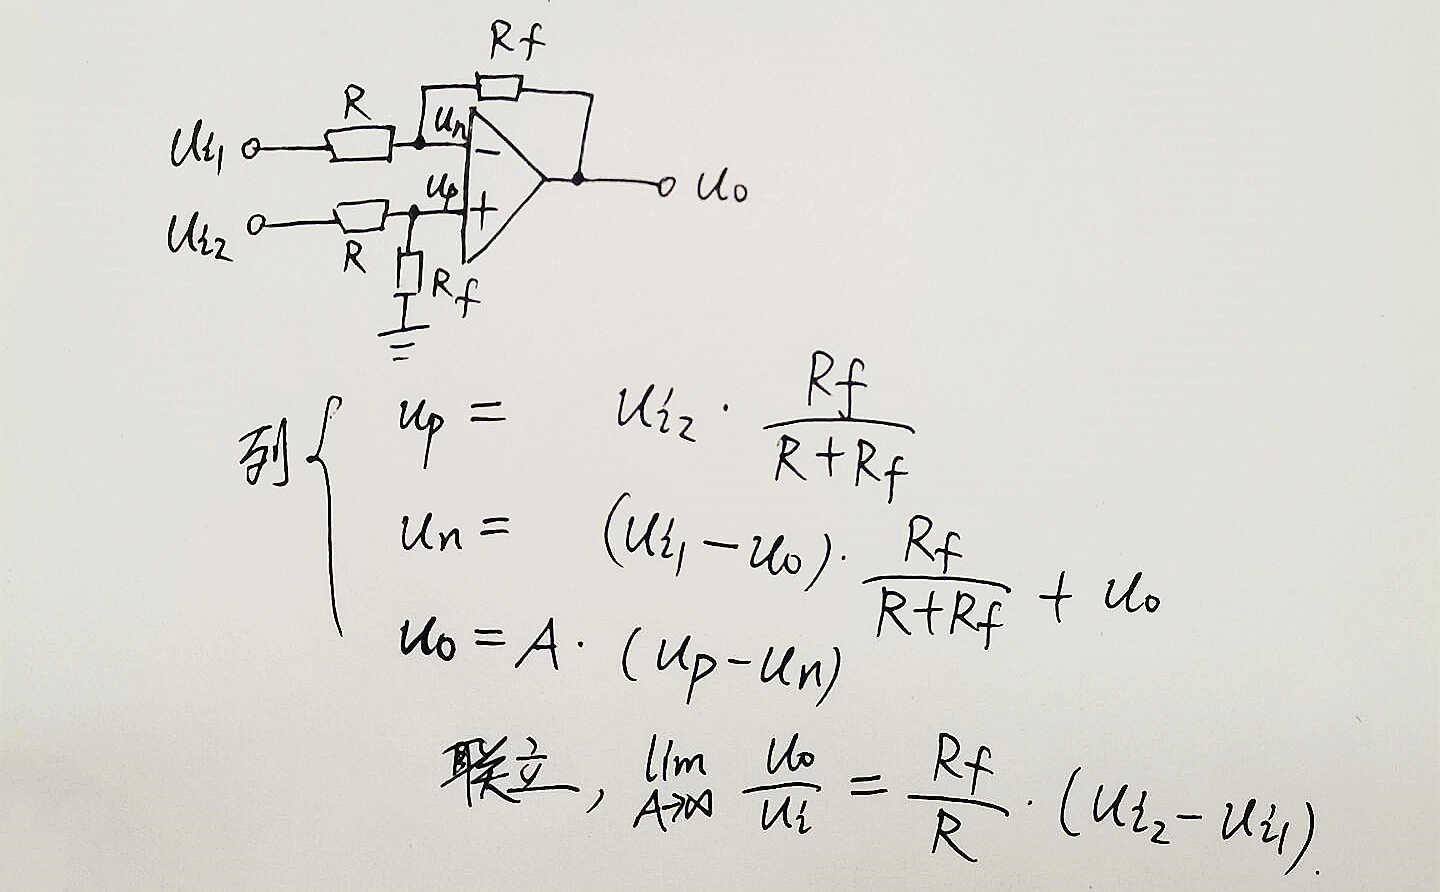 Rf
R
un
ui1
−
uo
up
+
ui2
R
Rf
列 { up = ui2 · Rf / (R+Rf)
un = (ui1 − uo) · Rf / (R+Rf) + uo
uo = A · (up − un)
联立, lim A→∞ uo / ui = Rf / R · (ui2 − ui1).